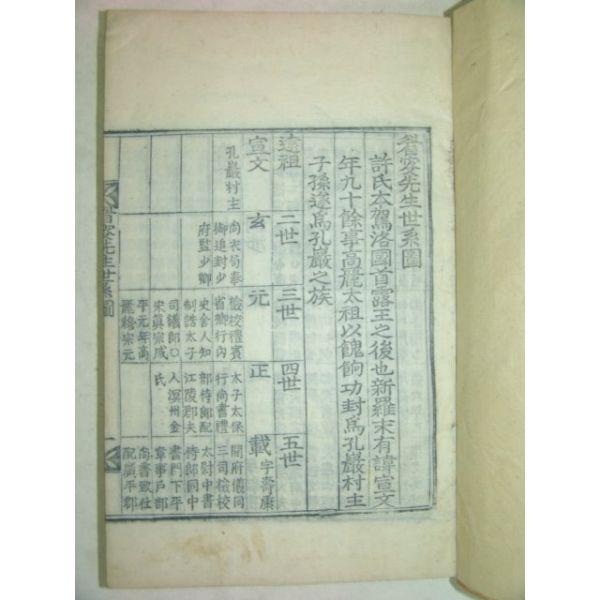 先生世系圖
許氏本駕洛國首露王之後也新羅末有諱宣文
年九十餘事高麗太祖以餽餉功封爲孔巖村主
子孫遂爲孔巖之族
遠祖
二世
三世
四世
五世
宣文
孔巖村主
玄
尙衣局奉
御追封少
府監少卿
元
檢校禮賓
省卿行內
史舍人知
制誥太子
司議郎○
宋眞宗咸
平元年高
麗穆宗元
正
太子太保
行尙書禮
部侍郎配
江陵郡夫
人溟州金
氏
載 字壽康
開府儀同
三司檢校
太尉中書
侍郎同中
書門下平
章事戶部
尙書致仕
配廣平郡
先生世系圖